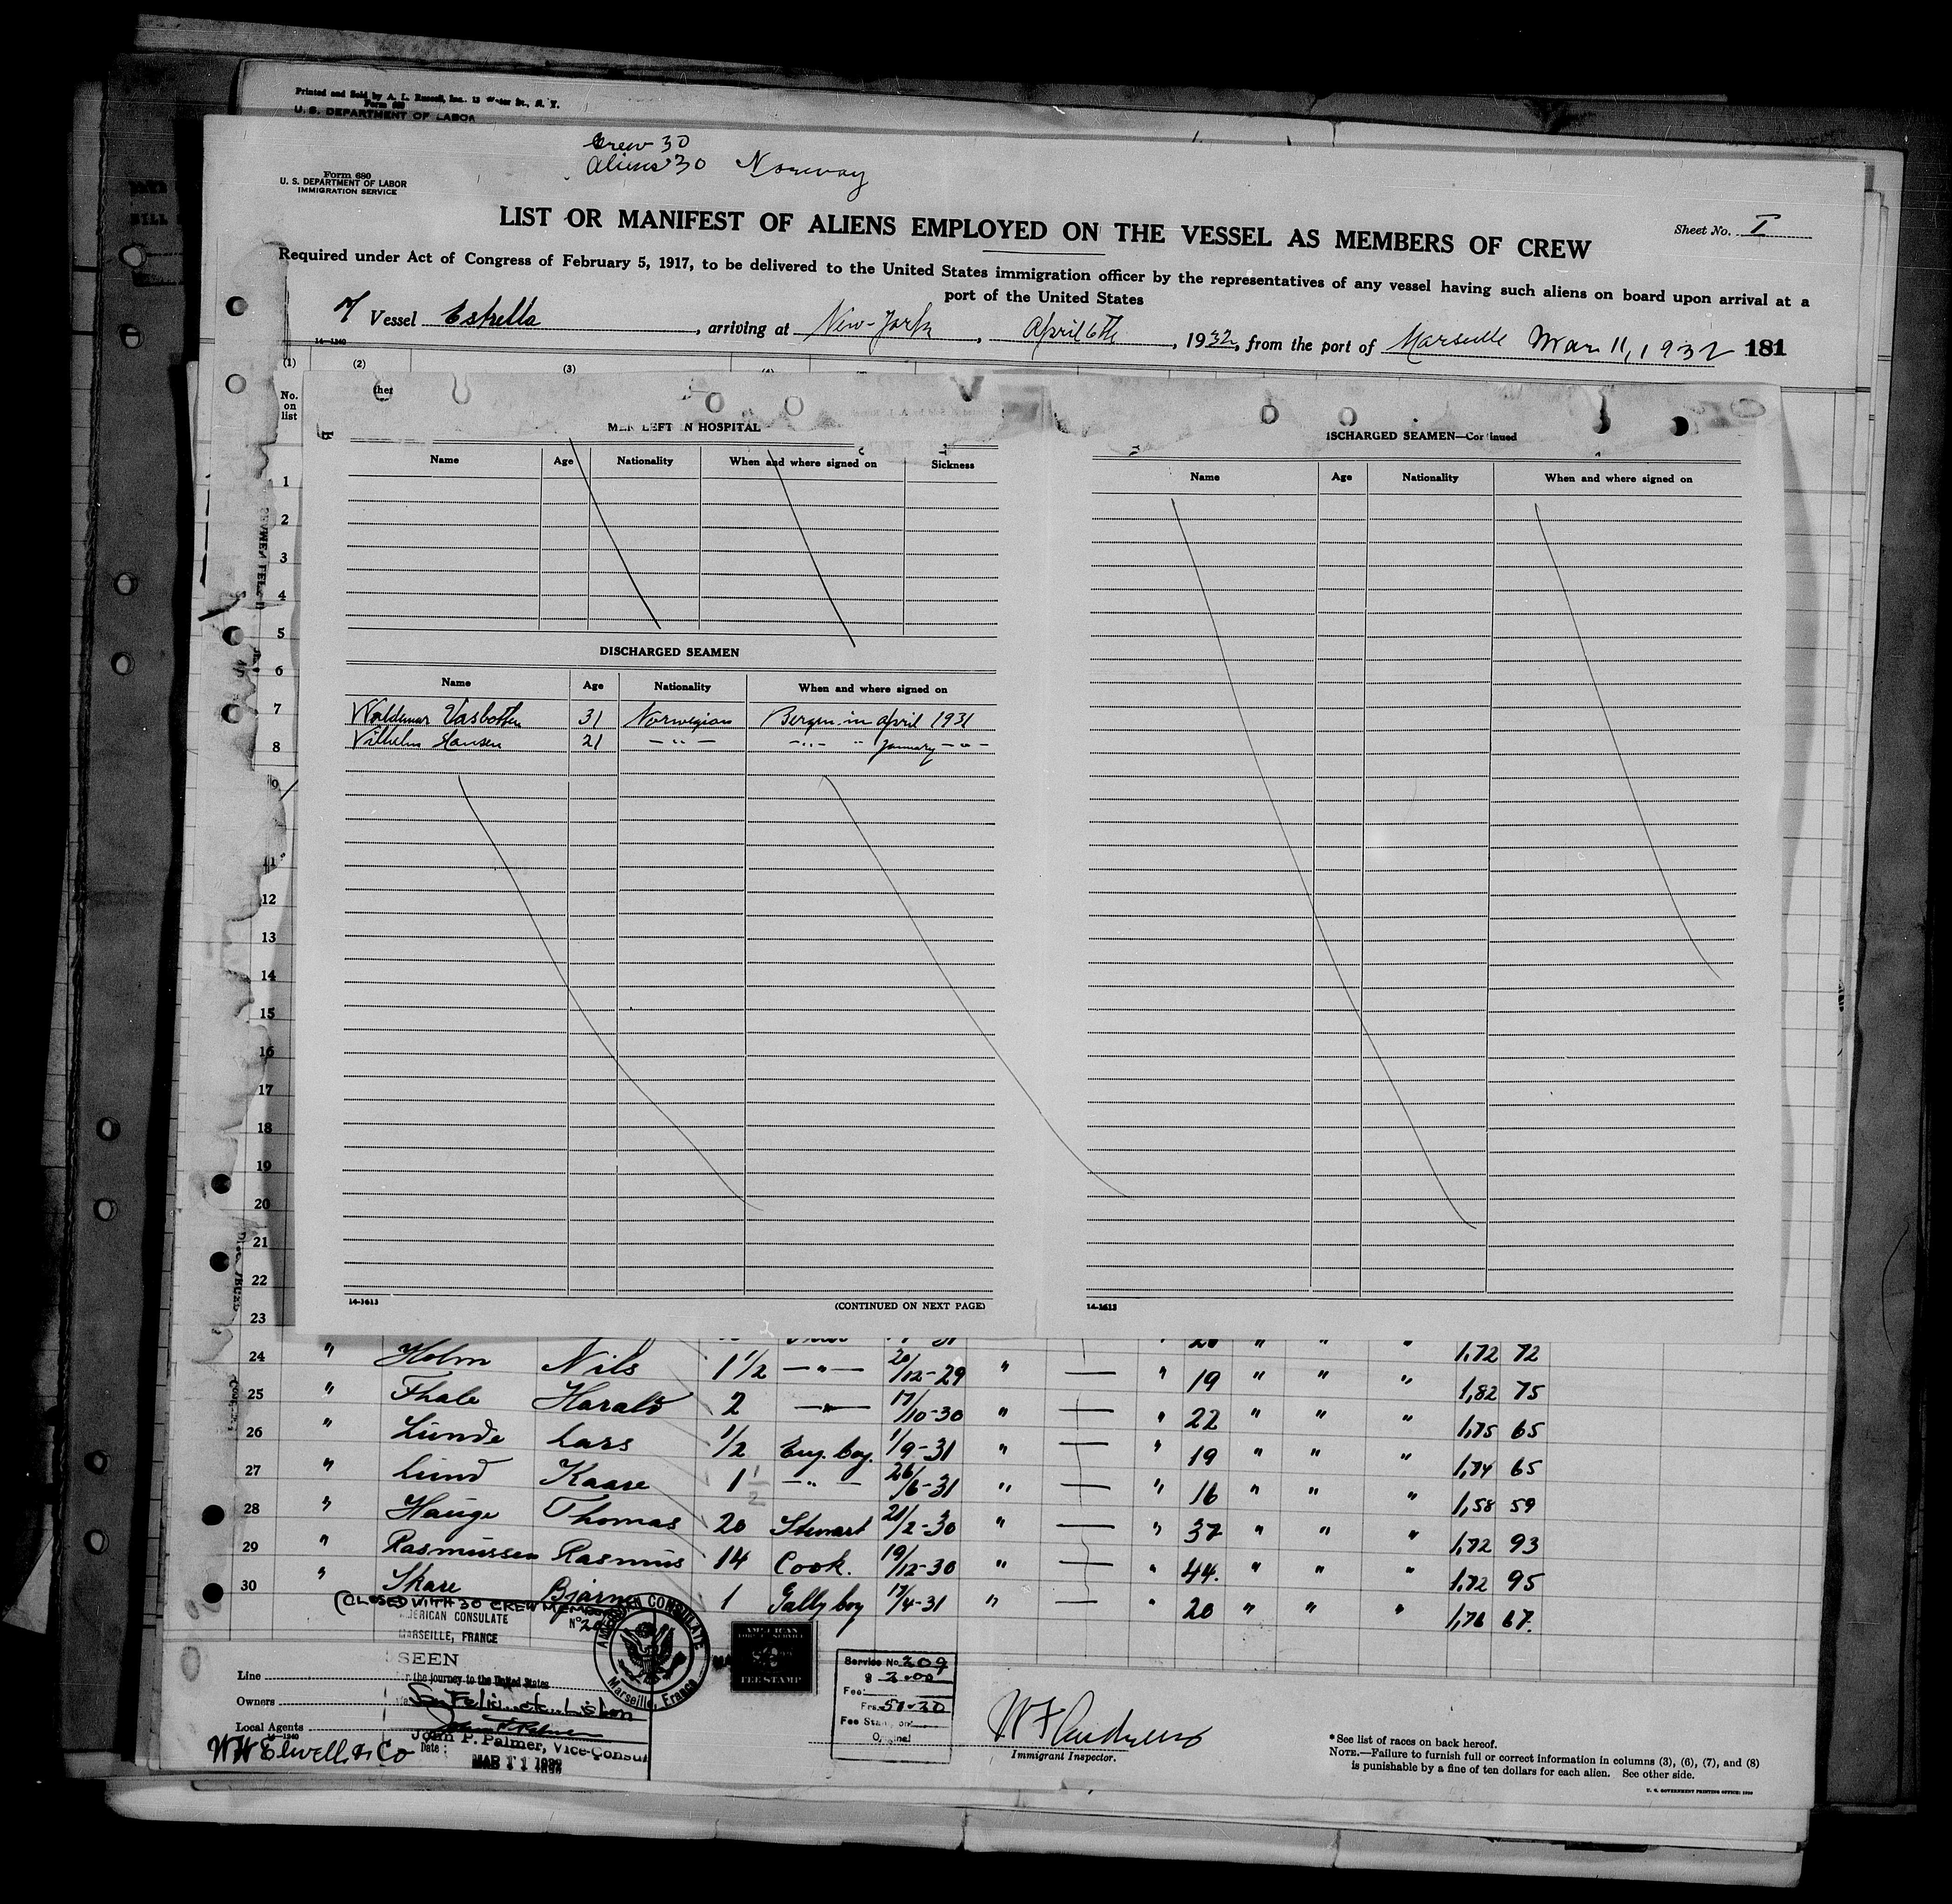 Printed and Sold by A. L. Russell, Inc.
Form 680
U. S. DEPARTMENT OF LABOR
Crew 30
Aliens 30 Norway
Form 680
U. S. DEPARTMENT OF LABOR
IMMIGRATION SERVICE
LIST OR MANIFEST OF ALIENS EMPLOYED ON THE VESSEL AS MEMBERS OF CREW
Sheet No. I
Required under Act of Congress of February 5, 1917, to be delivered to the United States immigration officer by the representatives of any vessel having such aliens on board upon arrival at a
port of the United States
Vessel Estrella, arriving at New-York, April 6th, 1932, from the port of Marseille Mar 11, 1932 181
14-1240
(1) (2) (3) (4)
No. on list
MEN LEFT IN HOSPITAL
Name Age Nationality When and where signed on Sickness
DISCHARGED SEAMEN
Name Age Nationality When and where signed on
Waldemar Vasbotten 31 Norwegian Bergen in April 1931
Vilhelm Hansen 21 -"- -"- " January -"-
14-1613
(CONTINUED ON NEXT PAGE)
DISCHARGED SEAMEN—Continued
Name Age Nationality When and where signed on
14-1613
1
2
3
4
5
6
7
8
9
11
12
13
14
15
16
17
18
19
20
21
22
23
24 " Holm Nils 1 1/2 -"- 20/12-29 " — " 19 " " " 1,72 72
25 " Thale Harald 2 -"- 17/10-30 " — " 22 " " " 1,82 75
26 " Lunde Lars 1/2 Eng. boy. 1/9-31 " — " 19 " " " 1,75 65
27 " Lund Kaare 1 1/2 -"- 26/6-31 " — " 16 " " " 1,74 65
28 " Hauge Thomas 20 Stewart 21/2-30 " — " 37 " " " 1,58 59
29 " Rasmussen Rasmus 14 Cook. 19/12-30 " — " 44. " " " 1,72 93
30 " Skare Bjarne 1 Gally boy 17/4-31 " — " 20 " " " 1,72 95
1,76 67.
(CLOSED WITH 30 CREW MEMBERS
AMERICAN CONSULATE
MARSEILLE, FRANCE
SEEN
for the journey to the United States
San Feliu etc. Lisbon
John P. Palmer, Vice-Consul
Date: MAR 11 1932
AMERICAN CONSULATE
Marseille, France
AMERICAN
FOREIGN SERVICE
FEE STAMP
Service No. 209
Fee: $ 2.00
Frs. 51.20
Fee Stamp on
Original
Line
Owners
Local Agents
14-1240
W H Elwell & Co
W F Andrews
Immigrant Inspector.
*See list of races on back hereof.
NOTE.—Failure to furnish full or correct information in columns (3), (6), (7), and (8)
is punishable by a fine of ten dollars for each alien. See other side.
U. S. GOVERNMENT PRINTING OFFICE: